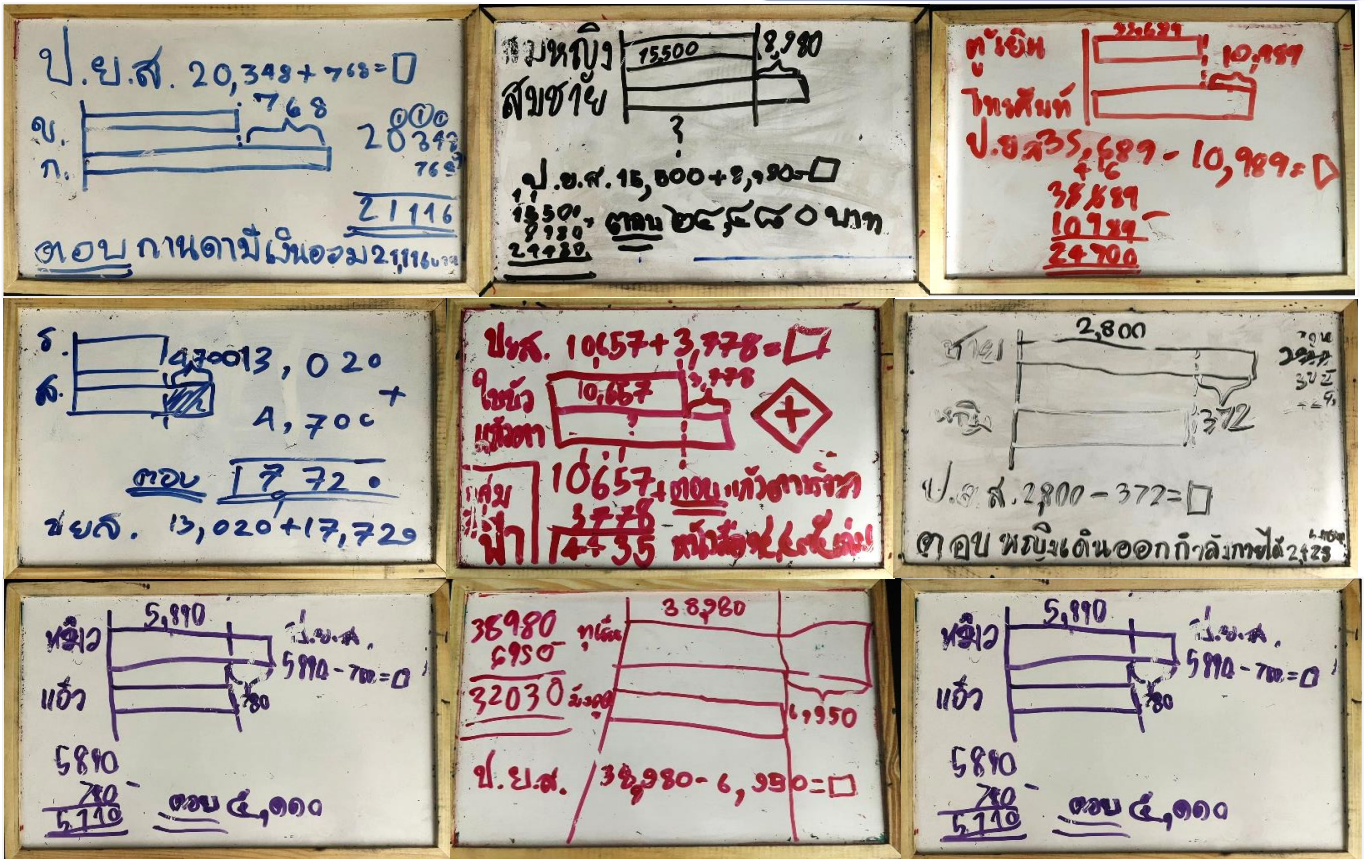 ป.ย.ส. 20,348+768=□
768
ข.
ก.
20348
768
21116
ตอบ กานดามีเงินออม 21,116 บาท
สมหญิง 15500 8,980
สมชาย
?
ป.ย.ส. 15,500+8,980=□
15500
8980
24480
ตอบ ๒๔,๔๘๐ บาท
ตู้เย็น 35,689
10,989
โทรทัศน์
ป.ย.ส 35,689-10,989=□
35,689
10989
24700
ร.
4,700
ส.
13,020
+
4,700
ตอบ 17720
ปยส. 13,020+17,720
ปยส. 10,657+3,778=□
ใบบัว 10,657 3,778
แก้วตา ?
+
กลุ่ม
ฟ้า
10657+
3778
14435
ตอบ แก้วตา
ชาย 2,800
หญิง 372
ป.ย.ส. 2,800-372=□
ตอบ หญิงเดินออกกำลังกายได้ 2,428
5,890
หมิว
แอ๊ว 780
ป.ย.ส.
5890-780=□
5890
780
5110
ตอบ ๕,๑๑๐
38980
6950
32030
38,980
6,950
ป.ย.ส. 38,980-6,950=□
5,890
หมิว
แอ๊ว 780
ป.ย.ส.
5890-780=□
5890
780
5110
ตอบ ๕,๑๑๐